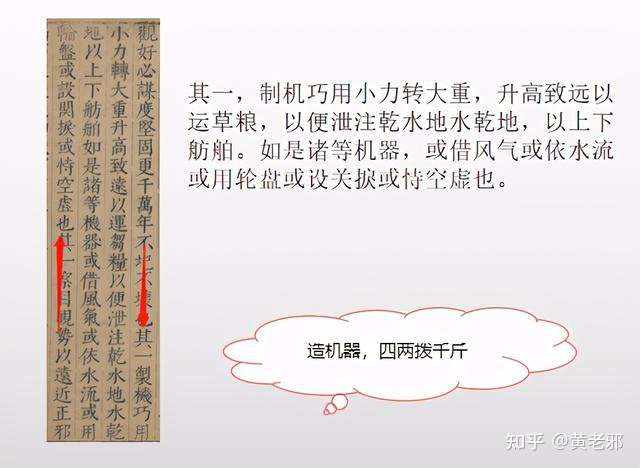 觀好必謀度堅固更千萬年不不也其一製機巧用
小力轉大重升高致遠以運芻糧以便泄注乾水地水乾
地以上下舫舶如是諸等機器或借風氣或依水流或用
輪盤或設關捩或恃空虛也其一察目視勢以遠近正邪
其一，制机巧用小力转大重，升高致远以
运草粮，以便泄注乾水地水乾地，以上下
舫舶。如是诸等机器，或借风气或依水流
或用轮盘或设关捩或恃空虚也。
造机器，四两拨千斤
知乎 @黄老邪